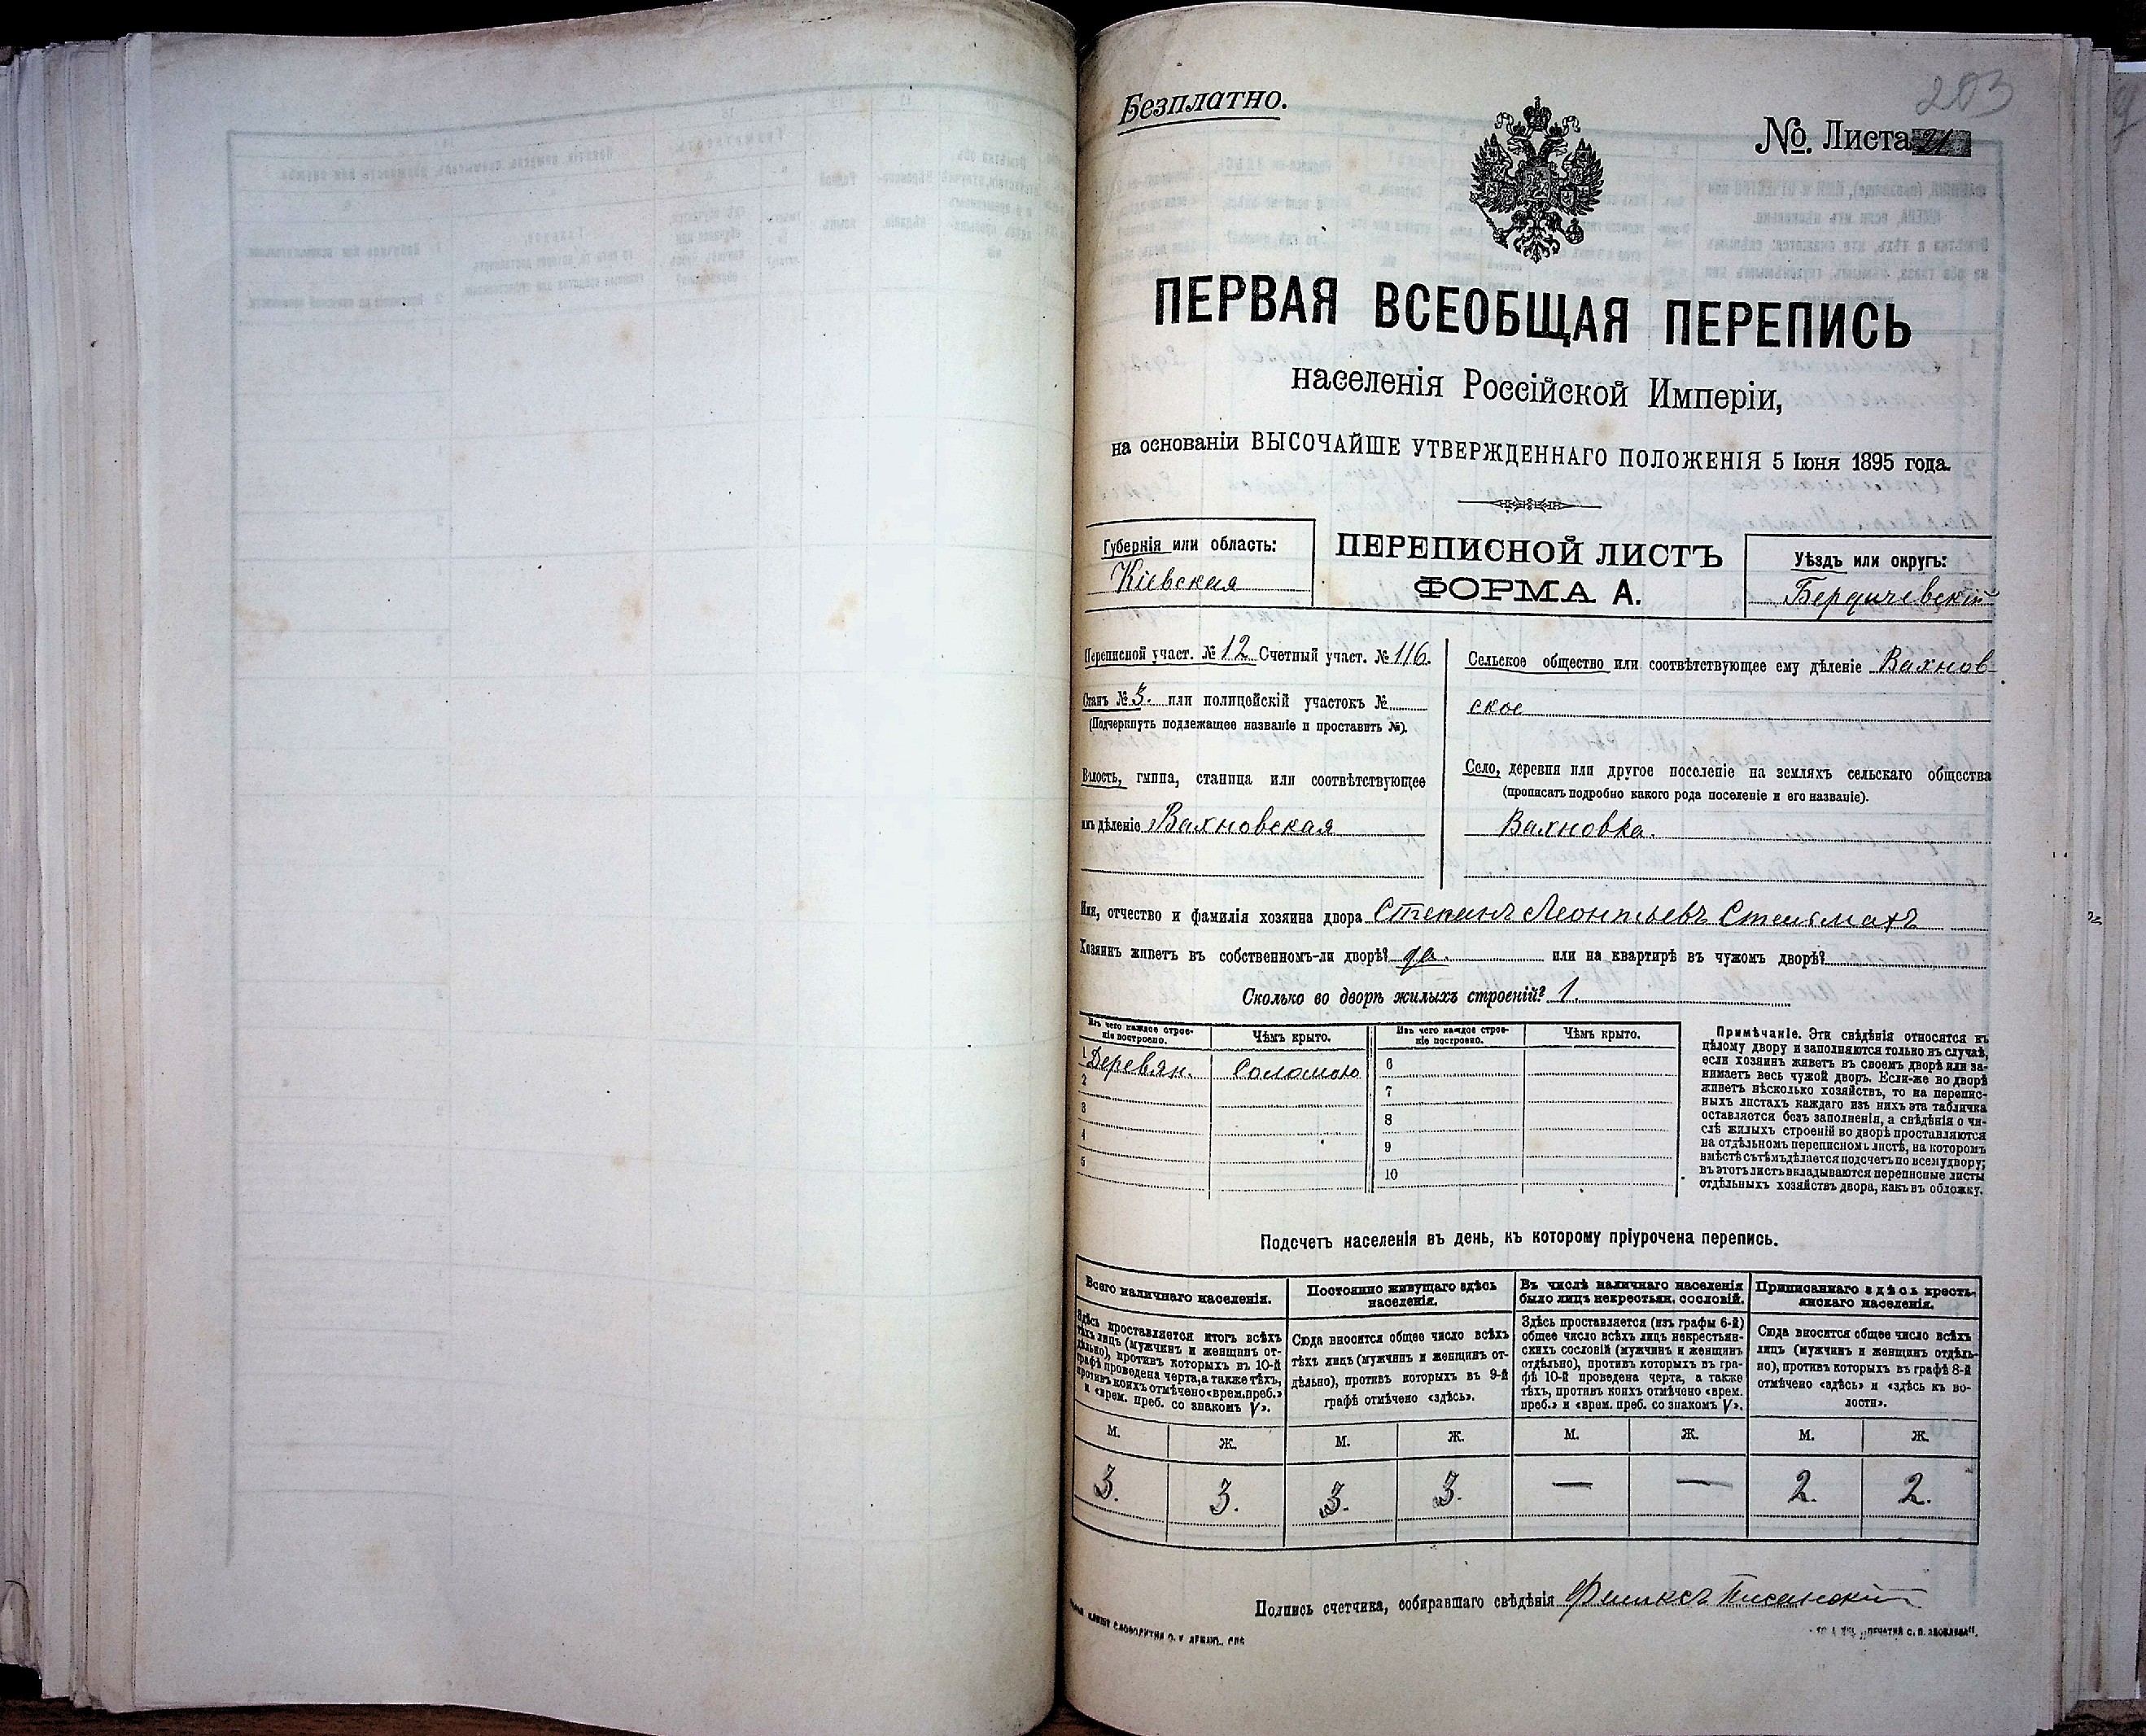 203
Безплатно.
№ Листа 21
ПЕРВАЯ ВСЕОБЩАЯ ПЕРЕПИСЬ
населенія Россійской Имперіи,
на основаніи ВЫСОЧАЙШЕ УТВЕРЖДЕННАГО ПОЛОЖЕНІЯ 5 Іюня 1895 года.
Губернія или область:
Кіевская
ПЕРЕПИСНОЙ ЛИСТЪ
ФОРМА А.
Уѣздъ или округъ:
Бердичевскій
Переписной участ. № 12 Счетный участ. № 116.
Станъ № 3. или полицейскій участокъ №
(Подчеркнуть подлежащее названіе и проставить №).
Волость, гмина, станица или соотвѣтствующее
имъ дѣленіе Вахновская
Сельское общество или соотвѣтствующее ему дѣленіе Вахнов-
ское
Село, деревня или другое поселеніе на земляхъ сельскаго общества
(прописать подробно какого рода поселеніе и его названіе).
Вахновка.
Имя, отчество и фамилія хозяина двора Степанъ Леонтьевъ Стельмахъ
Хозяинъ живетъ въ собственномъ-ли дворѣ? да. или на квартирѣ въ чужомъ дворѣ?
Сколько во дворѣ жилыхъ строеній? 1.
Изъ чего каждое строе-
ніе построено.
Чѣмъ крыто.
Изъ чего каждое строе-
ніе построено.
Чѣмъ крыто.
1 Деревян. Соломою
2
3
4
5
6
7
8
9
10
Примѣчаніе. Эти свѣдѣнія относятся къ
цѣлому двору и заполняются только въ случаѣ,
если хозяинъ живетъ въ своемъ дворѣ или за-
нимаетъ весь чужой дворъ. Если-же во дворѣ
живетъ нѣсколько хозяйствъ, то на перепис-
ныхъ листахъ каждаго изъ нихъ эта табличка
оставляется безъ заполненія, а свѣдѣнія о чи-
слѣ жилыхъ строеній во дворѣ проставляются
на отдѣльномъ переписномъ листѣ, на которомъ
вмѣстѣ съ тѣмъ дѣлается подсчетъ по всему двору;
въ этотъ листъ вкладываются переписные листы
отдѣльныхъ хозяйствъ двора, какъ въ обложку.
Подсчетъ населенія въ день, къ которому пріурочена перепись.
Всего наличнаго населенія.
Здѣсь проставляется итогъ всѣхъ
тѣхъ лицъ (мужчинъ и женщинъ от-
дѣльно), противъ которыхъ въ 10-й
графѣ проведена черта, а также тѣхъ,
противъ коихъ отмѣчено «врем. преб.»
и «врем. преб. со знакомъ V».
Постоянно живущаго здѣсь
населенія.
Сюда вносится общее число всѣхъ
тѣхъ лицъ (мужчинъ и женщинъ от-
дѣльно), противъ которыхъ въ 9-й
графѣ отмѣчено «здѣсь».
Въ числѣ наличнаго населенія
было лицъ некрестьян. сословій.
Здѣсь проставляется (изъ графы 6-й)
общее число всѣхъ лицъ некрестьян-
скихъ сословій (мужчинъ и женщинъ
отдѣльно), противъ которыхъ въ гра-
фѣ 10-й проведена черта, а также
тѣхъ, противъ коихъ отмѣчено «врем.
преб.» и «врем. преб. со знакомъ V».
Приписаннаго здѣсь кресть-
янскаго населенія.
Сюда вносится общее число всѣхъ
лицъ (мужчинъ и женщинъ отдѣль-
но), противъ которыхъ въ графѣ 8-й
отмѣчено «здѣсь» и «здѣсь къ во-
лости».
М. Ж. М. Ж. М. Ж. М. Ж.
3. 3. 3. 3. — — 2. 2.
Подпись счетчика, собиравшаго свѣдѣнія Феликсъ Писанскій